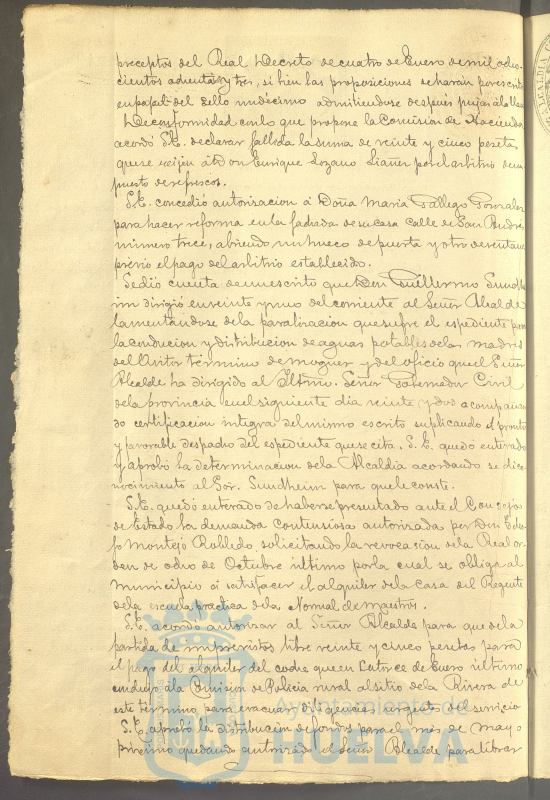 preceptos del Real Decreto de cuatro de Enero de mil ocho-
cientos ochenta y tres, si bien las proposiciones se harán por escrito
en papel del sello undécimo admitiendose despues pujas á la llana
De conformidad con lo que propone la Comision de Hacienda
acordó S.E. declarar fallida la suma de veinte y cinco pesetas
que se exijen á Don Enrique Lozano Liañez por el arbitrio de un
puesto de refrescos.
S.E. concedió autorizacion á Doña Maria Gallego Gonzalez
para hacer reforma en la fachada de su casa Calle de San Andrés
número trece, abriendo un hueco de puerta y otro de ventana
prévio el pago del arbitrio establecido.
Se dió cuenta de un escrito que Don Guillermo Sundh-
eim dirigió en veinte y uno del corriente al Señor Alcalde
lamentandose de la paralizacion que sufre el espediente para
la conducion y distribucion de aguas potables de las madres
del Avitor término de Moguer y del oficio que el Señor
Alcalde ha dirigido al Iltmo. Señor Gobernador Civil
de la provincia en el siguiente dia veinte y dos acompañan-
do certificacion integra del mismo escrito suplicando el pronto
y favorable despacho del espediente que se cita. S. E. quedó enterado
y aprobó la determinacion de la Alcaldía acordando se dé co-
nocimiento al Sor. Sundheim para que le conste.
S.E. quedó enterado de haberse presentado ante el Consejo
de Estado la demanda contenciosa autorizada por Don Eduar-
do Montejo Robledo solicitando la revocacion de la Real or-
den de ocho de Octubre último por la cual se obliga al
Municipio á satisfacer el alquiler de la casa del Regente
de la escuela práctica de la Normal de Maestros.
S.E. acordó autorizar al Señor Alcalde para que de la
partida de imprevistos libre veinte y cinco pesetas para
el pago del alquiler del coche que en catorce de Enero último
condujo á la Comision de Policia rural al sitio de la Rivera de
este término para evacuar diligencias urgentes del servicio
S.E. aprobó la distribucion de fondos para el mes de Mayo
próximo quedando autorizado el Señor Alcalde para librar
Ayuntamiento de
HUELVA
ALCALDIA